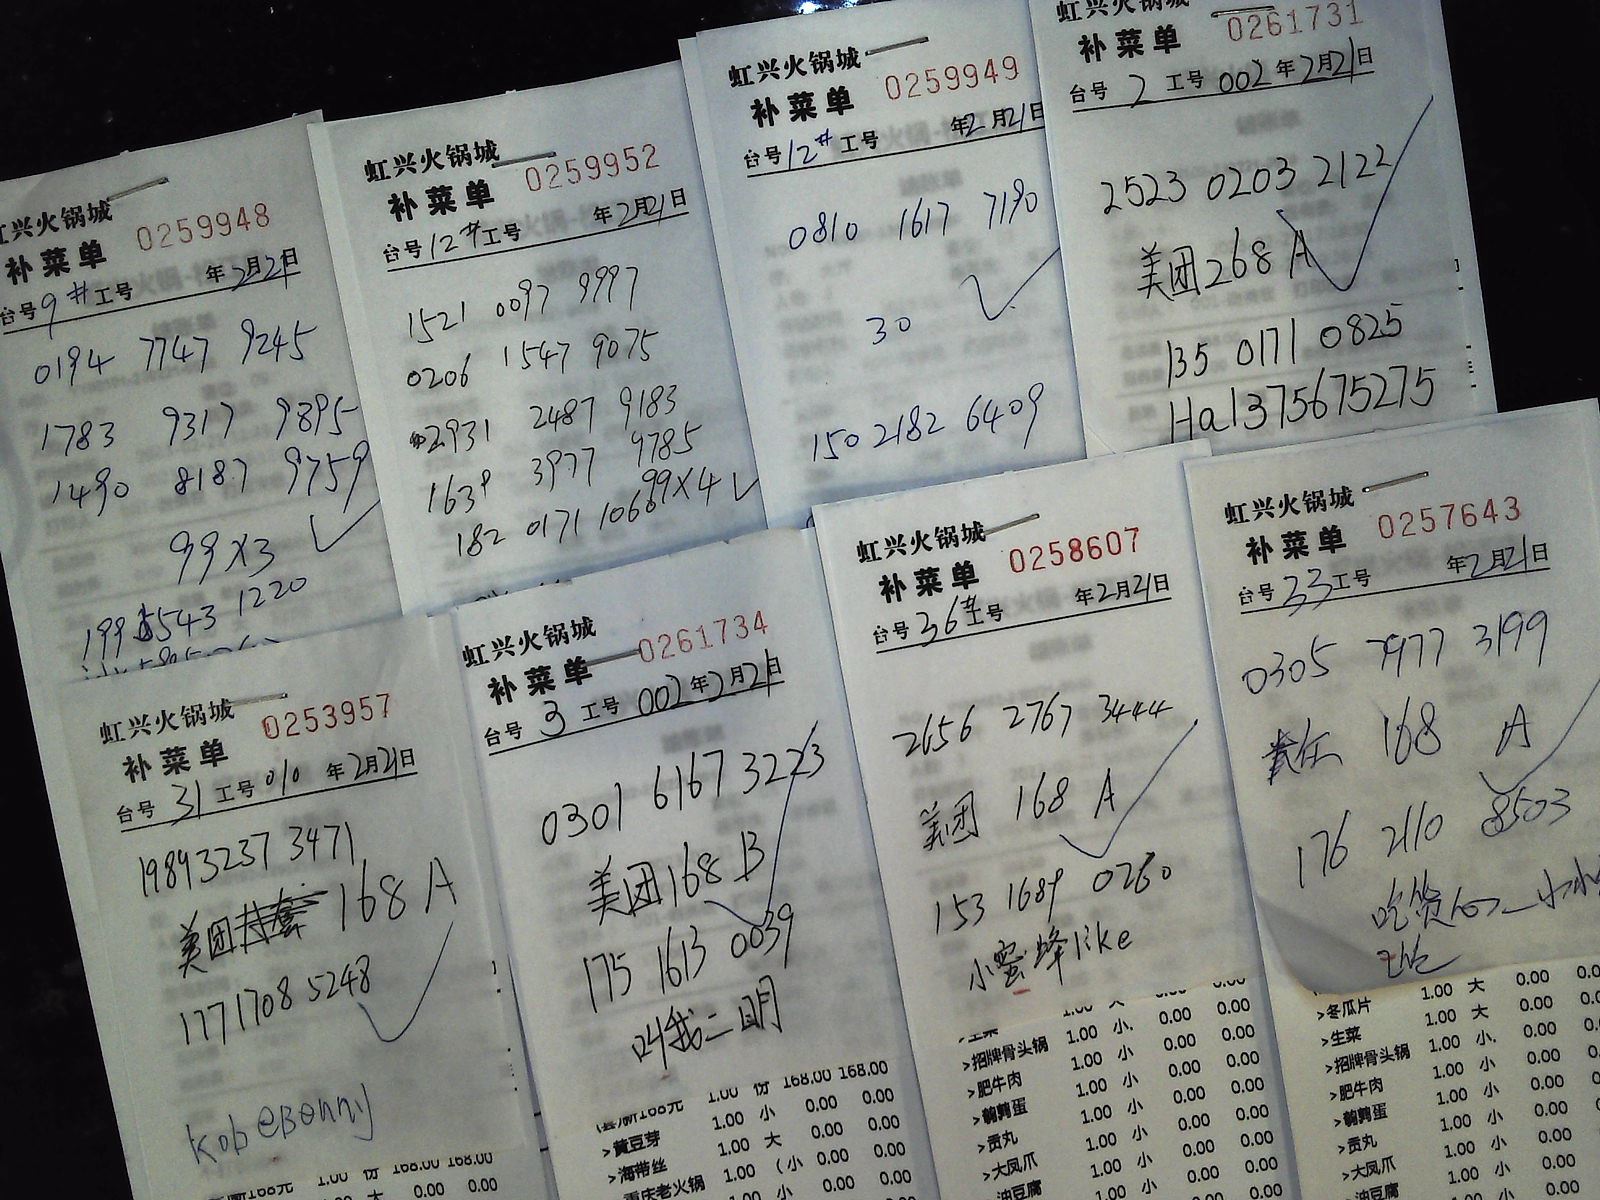 虹兴火锅城
补菜单 0259948
台号 9# 工号 年2月21日
0194 7747 9245
1783 9317 9895
1490 8187 9759
99×3
199 5543 1220
虹兴火锅城
补菜单 0259952
台号 12# 工号 年2月21日
1521 0097 9997
0206 1547 9075
2931 2487 9183
1639 3977 9785
99×4
182 0171 1066
虹兴火锅城
补菜单 0259949
台号 12# 工号 年2月21日
0810 1617 7190
30
150 2182 6409
虹兴火锅城
补菜单 0261731
台号 2 工号 002 年2月21日
2523 0203 2122
美团268 A
135 0171 0825
Ha1375675275
虹兴火锅城
补菜单 0253957
台号 31 工号 010 年2月21日
19893237 3471
美团 168 A
1771708 5248
KobeBonny
168.00 168.00
大 0.00 0.00
虹兴火锅城
补菜单 0261734
台号 3 工号 002 年2月21日
0301 6167 3223
美团168 B
175 1613 0039
叫我二明
1.00 份 168.00 168.00
>黄豆芽 1.00 小 0.00 0.00
>海带丝 1.00 大 0.00 0.00
重庆老火锅 1.00 (小 0.00 0.00
虹兴火锅城
补菜单 0258607
台号 36# 工号 年2月21日
2656 2767 3444
美团 168 A
153 1689 0260
小蜜蜂like
>生菜 1.00 小. 0.00 0.00
>招牌骨头锅 1.00 小 0.00 0.00
>肥牛肉 1.00 小 0.00 0.00
>鹌鹑蛋 1.00 小 0.00 0.00
>贡丸 1.00 小 0.00 0.00
>大凤爪 1.00 小 0.00 0.00
油豆腐
虹兴火锅城
补菜单 0257643
台号 33 工号 年2月21日
0305 7977 3199
168 A
176 2110 8503
>冬瓜片 1.00 大 0.00
>生菜 1.00 大 0.00
>招牌骨头锅 1.00 小. 0.00
>肥牛肉 1.00 小 0.00
>鹌鹑蛋 1.00 小 0.00
>贡丸 1.00 小 0.00
>大凤爪 1.00 小 0.00
油豆腐 1.00 小 0.00